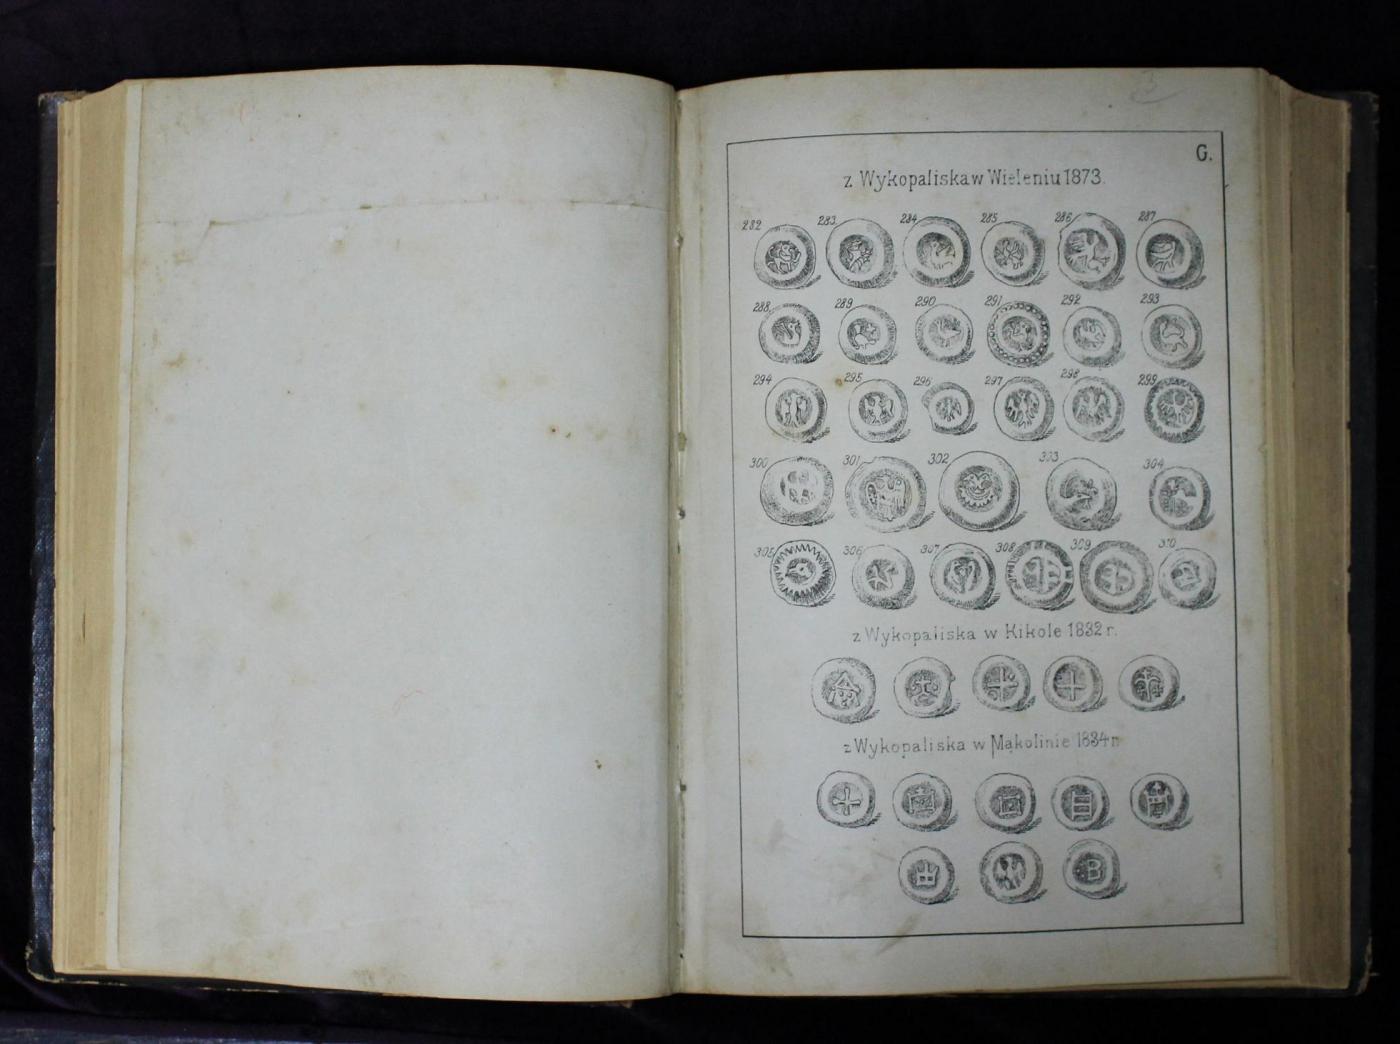 G.
z Wykopaliska w Wieleniu 1873.
282 283 284 285 286 287
288 289 290 291 292 293
294 295 296 297 298 299
300 301 302 303 304
305 306 307 308 309 310
z Wykopaliska w Kikole 1832 r.
z Wykopaliska w Mąkolinie 1834 r.
B